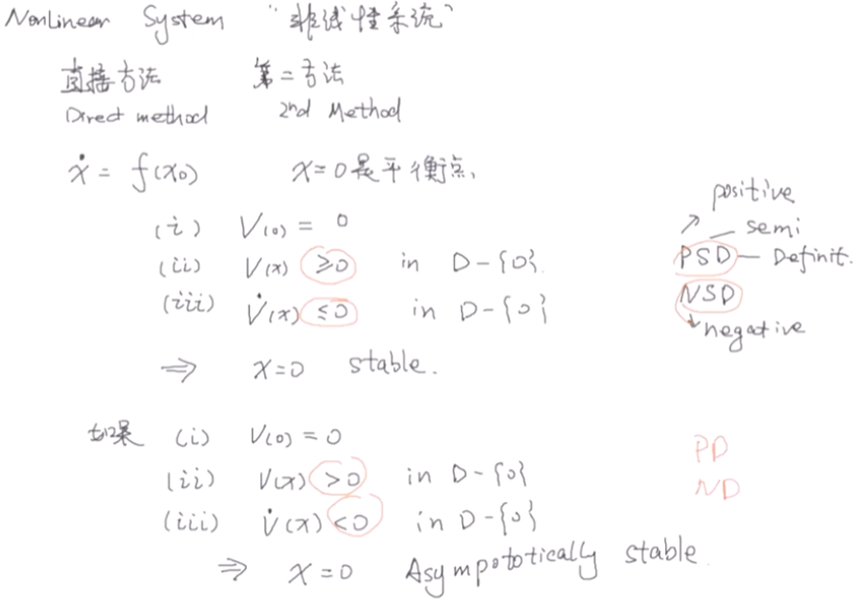 NonLinear System "非线性系统"
直接方法 第二方法
Direct method 2nd Method
ẋ = f(x₀) x=0是平衡点、
(i) V(0) = 0
(ii) V(x) ≥0 in D-{0}
(iii) V̇(x) ≤0 in D-{0}
⇒ x=0 stable.
positive
semi
PSD — Definit.
NSD
negative
如果 (i) V(0) = 0
(ii) V(x) >0 in D-{0}
(iii) V̇(x) <0 in D-{0}
⇒ x=0 Asympototically stable
PD
ND